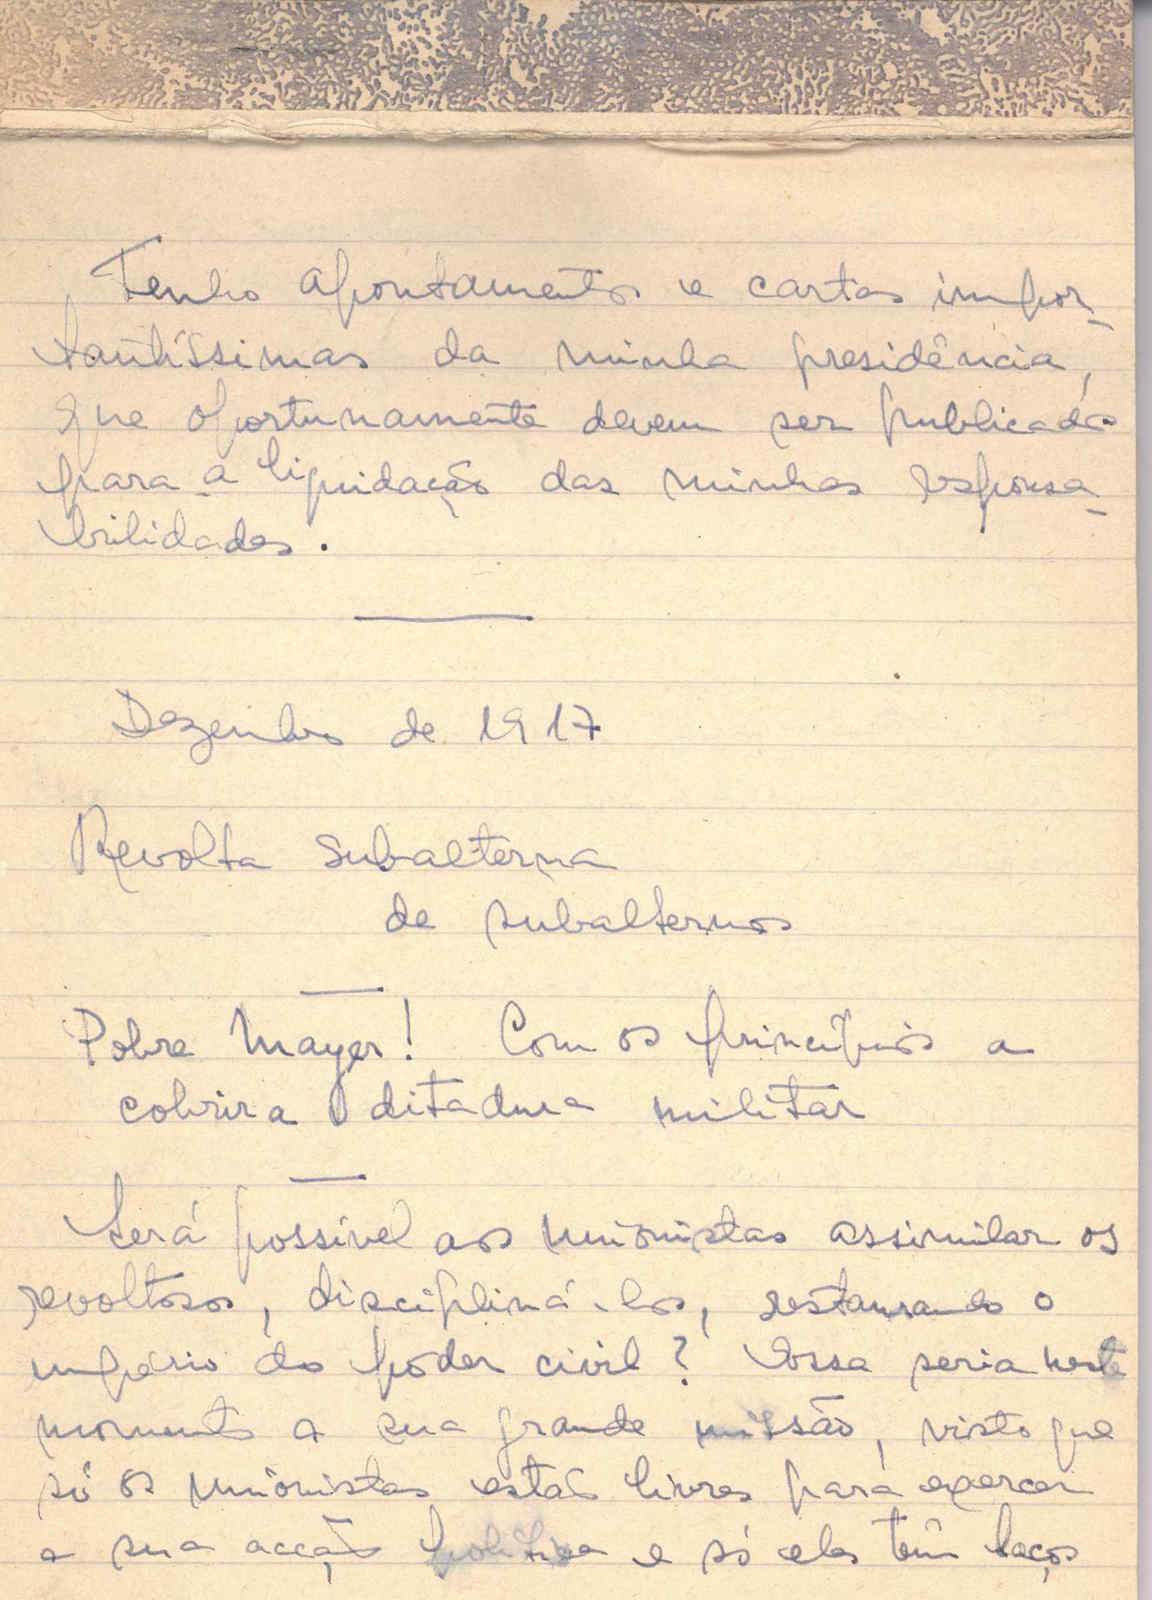 Tenho apontamentos e cartas impor-
tantíssimas da minha presidência,
que oportunamente devem ser publicadas
para a liquidação das minhas responsa-
bilidades.
Dezembro de 1917
Revolta subalterna
de subalternos
Pobre Mayer! Com os princípios a
cobrir a ditadura militar
Será possível aos unionistas assimilar os
revoltosos, discipliná-los, restaurando o
império do poder civil? Essa seria neste
momento a sua grande missão, visto que
só os unionistas estão livres para exercer
a sua acção política e só eles têm laços